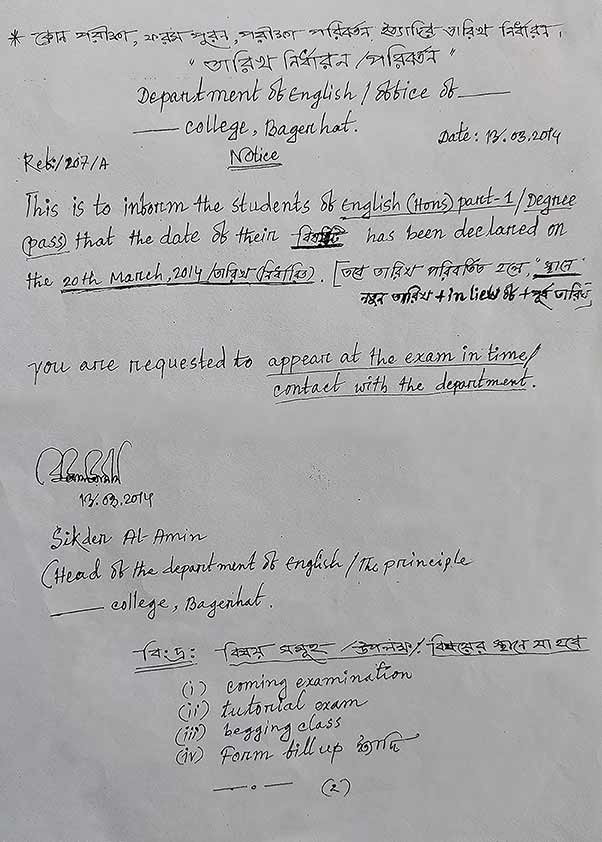 * কোন পরীক্ষা, ফরম পুরন, পরীক্ষা পরিবর্তন ইত্যাদির তারিখ নির্ধারন।
"তারিখ নির্ধারন/পরিবর্তন"
Department of English / Office of ____
____ college, Bagerhat.
Date: 13.03.2014
Ref:/207/A
Notice
This is to inform the students of English (Hons) part-1/Degree
(pass) that the date of their বিষয়টি has been declared on
the 20th March, 2014 /তারিখ (নির্ধারিত). [তবে তারিখ পরিবর্তিত হলে, "স্থানে"
নতুন তারিখ + in lieu of + পূর্ব তারিখ]
you are requested to appear at the exam in time/
contact with the department.
13.03.2014
Sikder Al-Amin
(Head of the department of English / The principle
____ college, Bagerhat.
বি:দ্র: বিষয় সমূহ /উপলক্ষ্য/ বিষয়ের স্থানে যা হবে
(i) coming examination
(ii) tutorial exam
(iii) begging class
(iv) Form fill up ইত্যাদি
—.— (2)